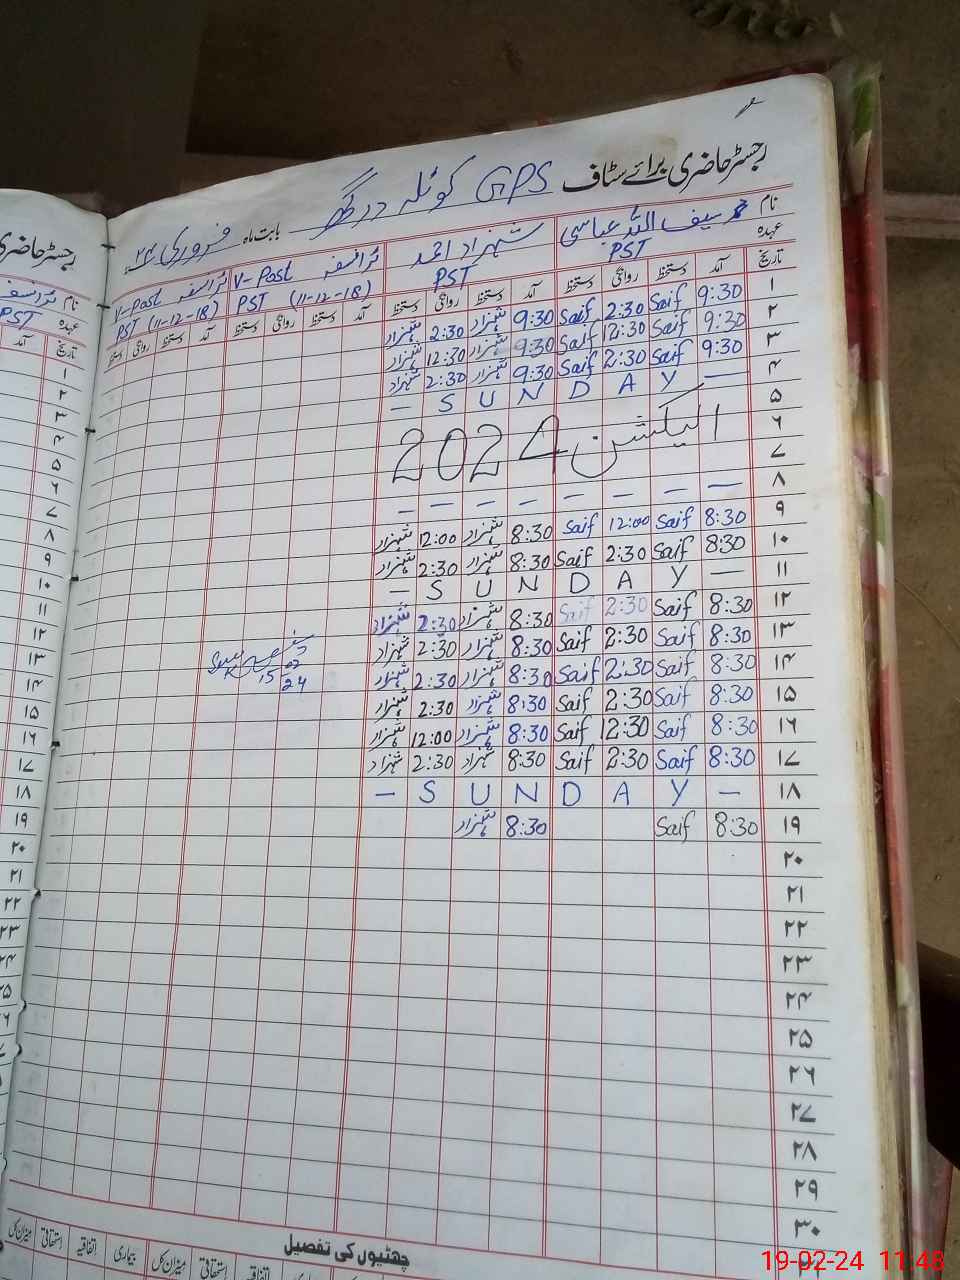 رجسٹر حاضری برائے سٹاف GPS کوئلہ درگھ بابت ماہ فروری ۲۴ء
نام سیف اللہ عباسی شہزاد احمد ٹرانسفر V-Post ٹرانسفر V-Post
عہدہ PST PST PST (11-12-18) PST (11-12-18)
تاریخ آمد دستخط روانگی دستخط آمد دستخط روانگی دستخط آمد دستخط روانگی دستخط آمد دستخط روانگی دستخط
۱ 9:30 Saif 2:30 Saif 9:30 شہزاد 2:30 شہزاد
۲ 9:30 Saif 12:30 Saif 9:30 شہزاد 12:30 شہزاد
۳ 9:30 Saif 2:30 Saif 9:30 شہزاد 2:30 شہزاد
۴ — S U N D A Y —
۵
۶ الیکشن 2024
۷
۸ — — — — — — — —
۹ 8:30 Saif 12:00 Saif 8:30 شہزاد 12:00 شہزاد
۱۰ 8:30 Saif 2:30 Saif 8:30 شہزاد 2:30 شہزاد
۱۱ — S U N D A Y —
۱۲ 8:30 Saif 2:30 Saif 8:30 شہزاد 2:30 شہزاد
۱۳ 8:30 Saif 2:30 Saif 8:30 شہزاد 2:30 شہزاد
۱۴ 8:30 Saif 2:30 Saif 8:30 شہزاد 2:30 شہزاد
15/02/24
۱۵ 8:30 Saif 2:30 Saif 8:30 شہزاد 2:30 شہزاد
۱۶ 8:30 Saif 12:30 Saif 8:30 شہزاد 12:00 شہزاد
۱۷ 8:30 Saif 2:30 Saif 8:30 شہزاد 2:30 شہزاد
۱۸ — S U N D A Y —
۱۹ 8:30 Saif 8:30 شہزاد
۲۰
۲۱
۲۲
۲۳
۲۴
۲۵
۲۶
۲۷
۲۸
۲۹
۳۰
چھٹیوں کی تفصیل
اتفاقیہ استحقاقی میزان کل بیماری اتفاقیہ استحقاقی میزان کل
رجسٹر حاضری
نام ٹرانسفر
عہدہ PST
تاریخ آمد
۱
۲
۳
۴
۵
۶
۷
۸
۹
۱۰
۱۱
۱۲
۱۳
۱۴
۱۵
۱۶
۱۷
۱۸
۱۹
۲۰
۲۱
۲۲
۲۳
۲۴
۲۵
19-02-24 11:48